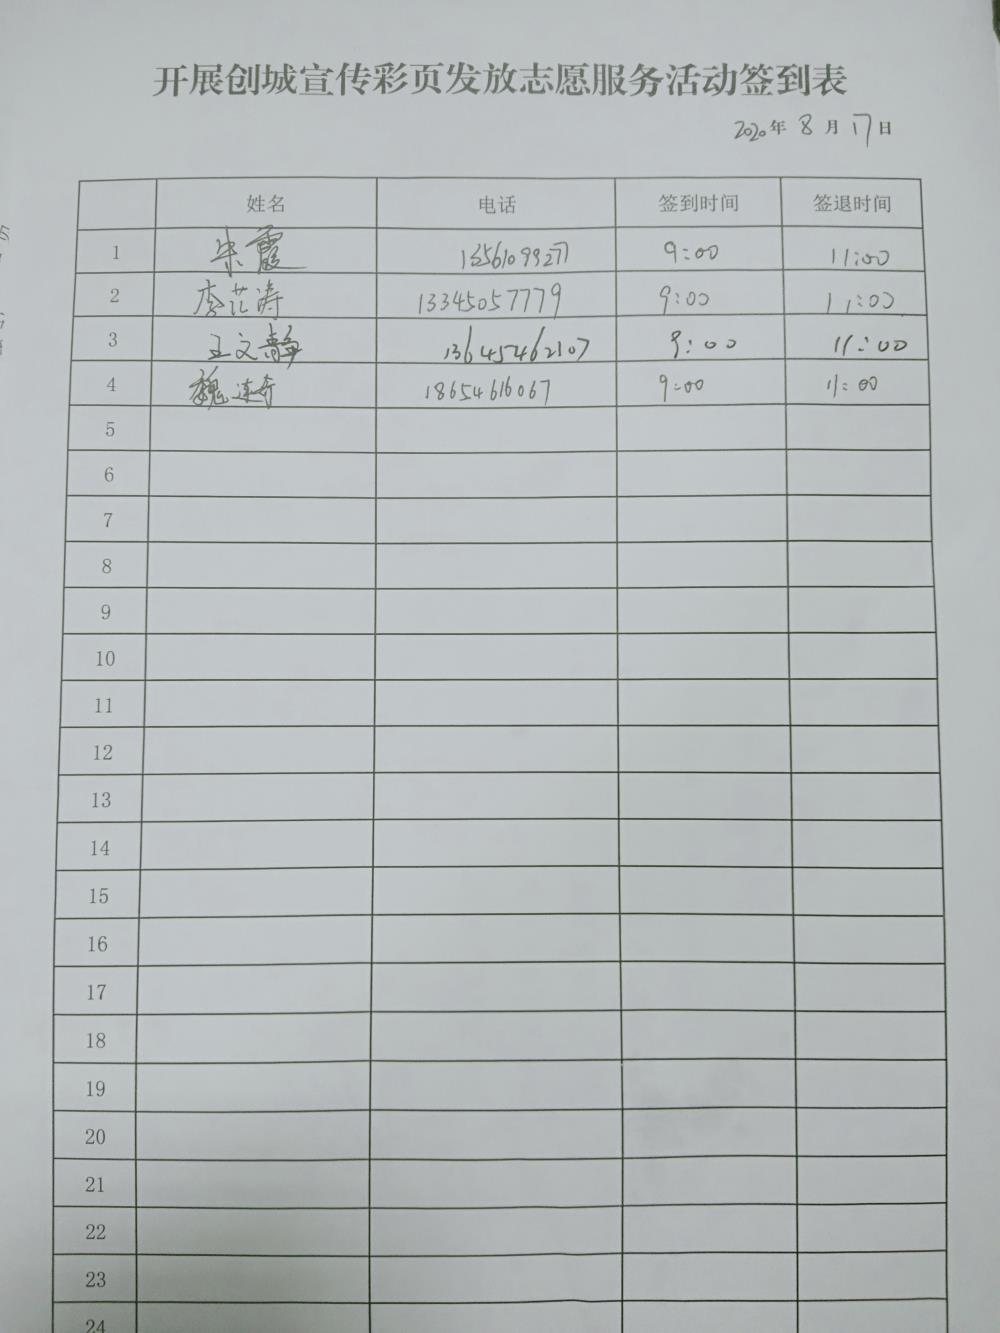 开展创城宣传彩页发放志愿服务活动签到表
2020年 8 月 17日
姓名 电话 签到时间 签退时间
1 朱霞 13561099277 9:00 11:00
2 李范涛 13345057779 9:00 11:00
3 王文静 13645462107 9:00 11:00
4 魏连奇 18654616067 9:00 11:00
5
6
7
8
9
10
11
12
13
14
15
16
17
18
19
20
21
22
23
24